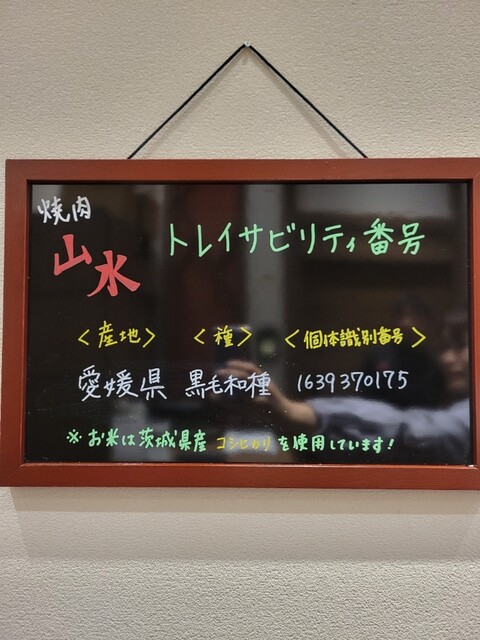 焼肉
山水
トレイサビリティ番号
<産地> <種> <個体識別番号>
愛媛県 黒毛和種 1639370175
※お米は茨城県産コシヒカリを使用しています!